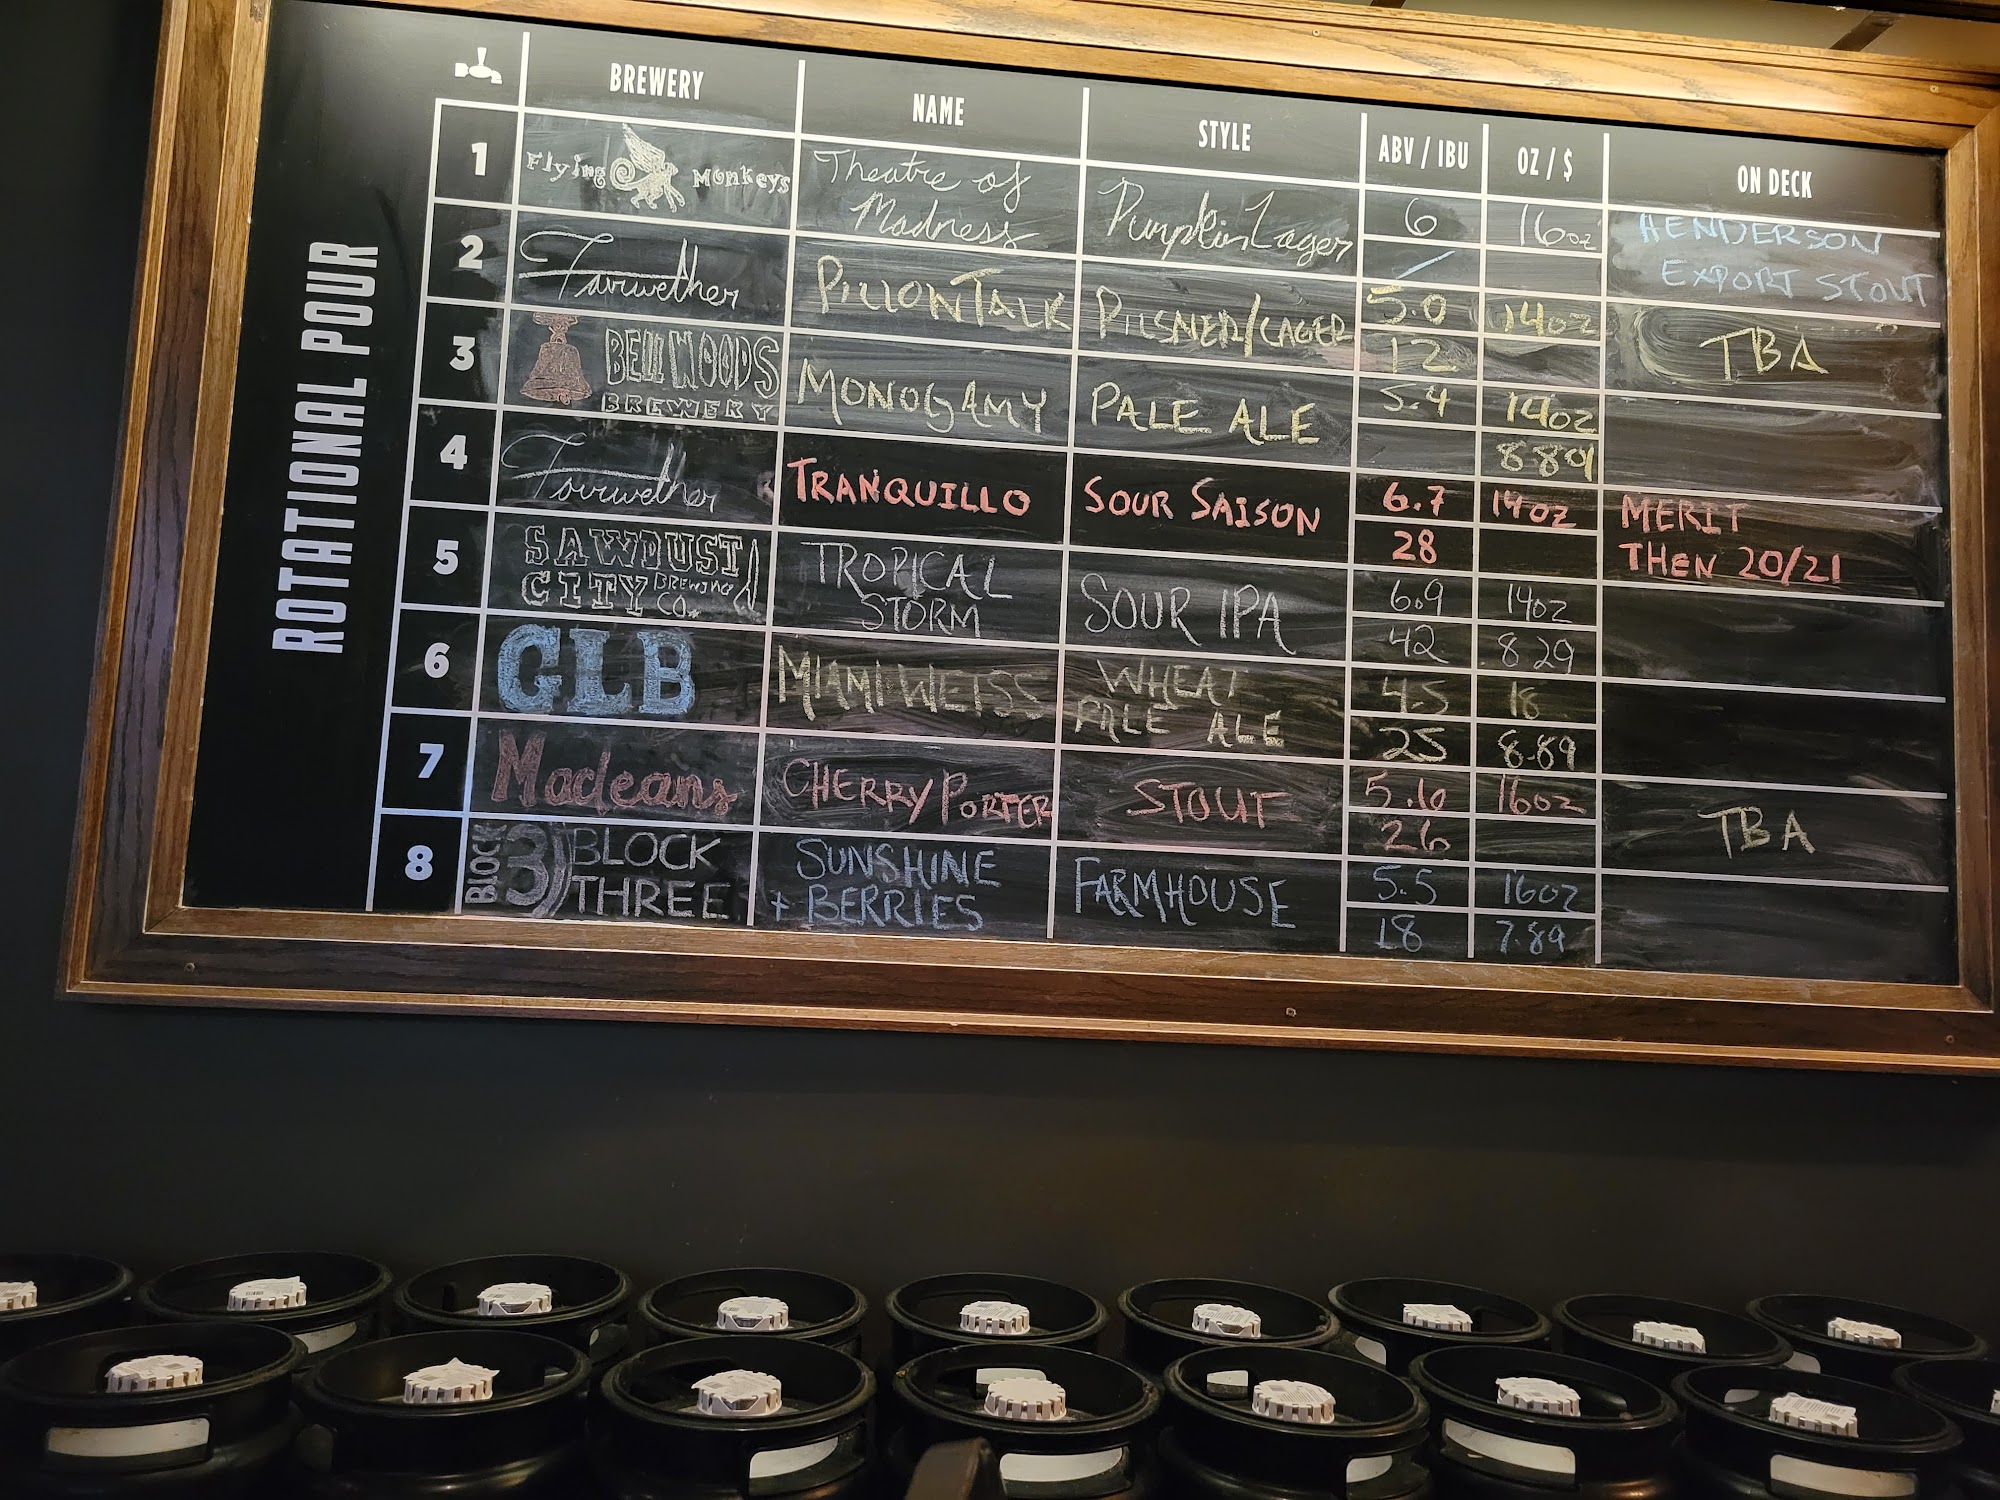 ROTATIONAL POUR
BREWERY NAME STYLE ABV / IBU OZ / $ ON DECK
1 Flying Monkeys Theatre of Madness Pumpkin Lager 6 / 16oz HENDERSON EXPORT STOUT
2 Fairwether PILLOWTALK PILSNER/LAGER 5.0 12 14oz TBA
3 BELLWOODS BREWERY MONOGAMY PALE ALE 5.4 14oz 8.89
4 Fairwether TRANQUILLO SOUR SAISON 6.7 28 14oz MERIT THEN 20/21
5 SAWDUST CITY BREWING CO. TROPICAL STORM SOUR IPA 6.9 42 14oz 8.29
6 GLB MIAMI WEISS WHEAT PALE ALE 4.5 25 18 8.89
7 Macleans CHERRY PORTER STOUT 5.6 26 16oz TBA
8 BLOCK 3 BLOCK THREE SUNSHINE + BERRIES FARMHOUSE 5.5 18 16oz 7.89